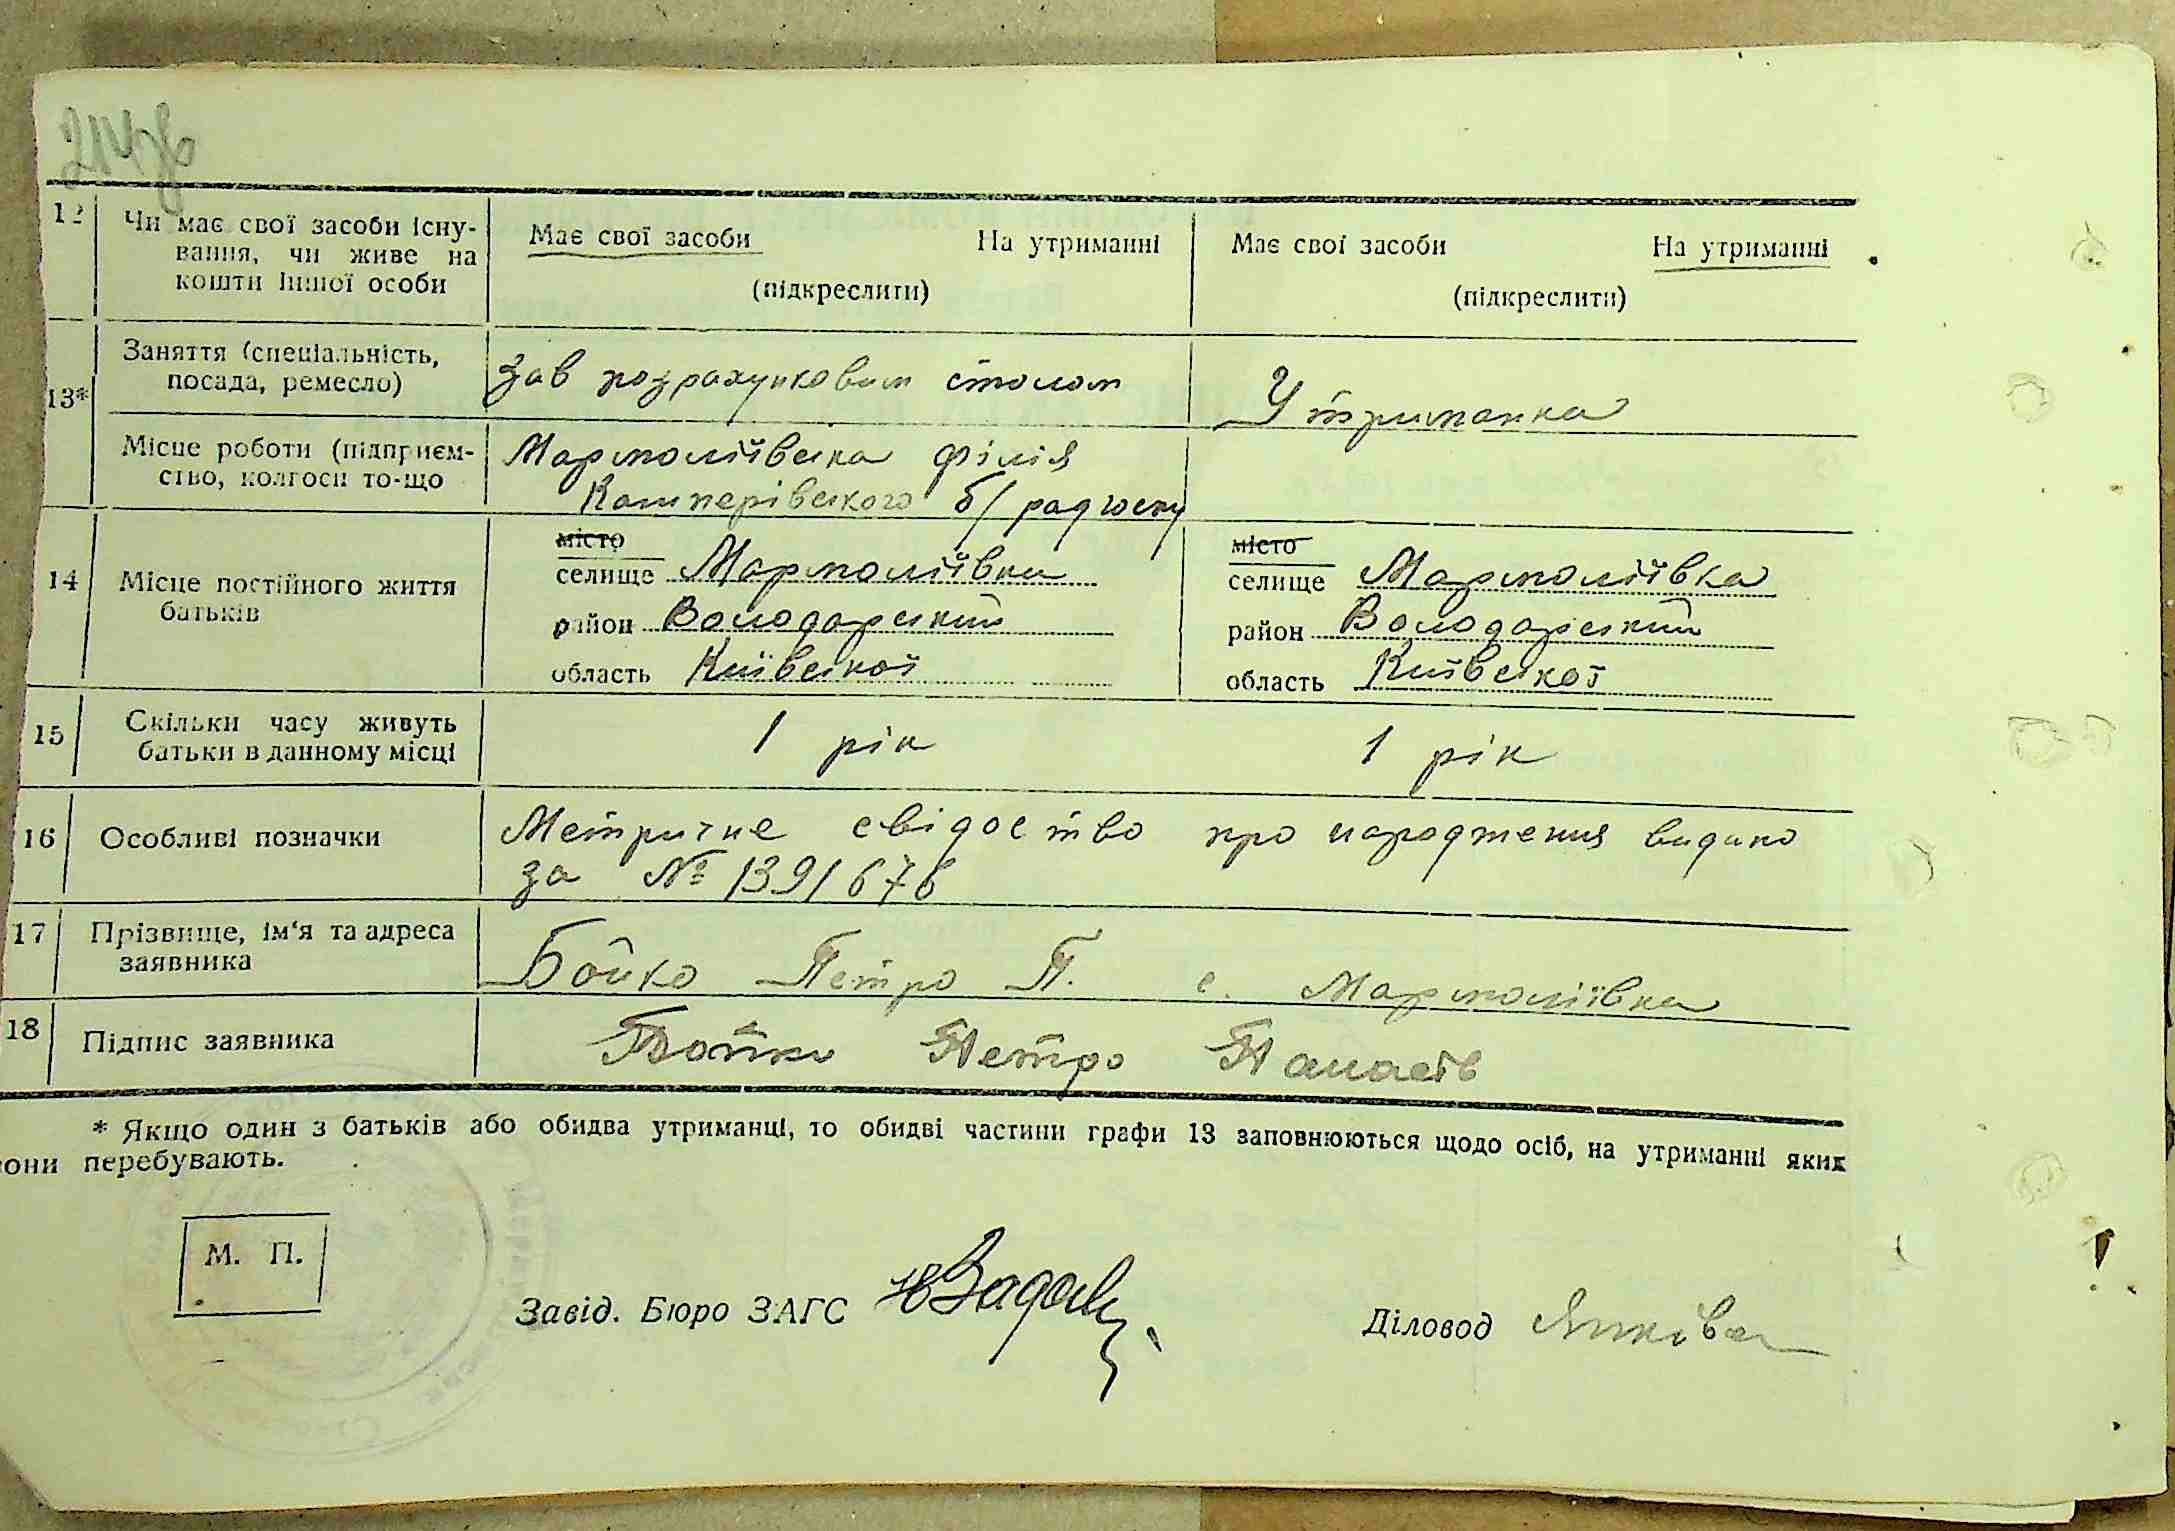 214зв
12 Чи має свої засоби існу-
вання, чи живе на
кошти іншої особи
Має свої засоби На утриманні
(підкреслити)
Має свої засоби На утриманні
(підкреслити)
13* Заняття (спеціальність,
посада, ремесло)
Зав розрахунковим столом
Утриманка
Місце роботи (підприєм-
ство, колгосп то-що
Мармоліївська філія
б/ радгоспу
14 Місце постійного життя
батьків
місто
селище Мармоліївка
район Володарський
область Київської
місто
селище Мармоліївка
район Володарський
область Київської
15 Скільки часу живуть
батьки в данному місці
1 рік 1 рік
16 Особливі позначки
Метричне свідоство про народження видано
за № 1391676
17 Прізвище, ім'я та адреса
заявника
Бойко Петро П. с. Мармоліївка
18 Підпис заявника
Бойко Петро
* Якщо один з батьків або обидва утриманці, то обидві частини графи 13 заповнюються щодо осіб, на утриманні яких
вони перебувають.
М. П.
Завід. Бюро ЗАГС
Діловод